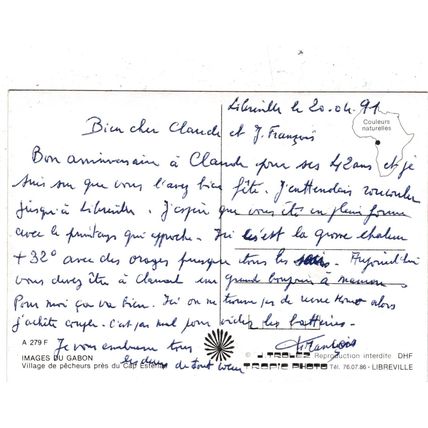 Libreville le 20.04.91
Couleurs
naturelles
Bien cher Claude et J. François
Bon anniversaire à Claude pour ses 42 ans et je
suis sur que vous l'avez bien fêté. J'entendais roucouler
jusqu'à Libreville. J'espère que vous êtes en pleine forme
avec le printemps qui approche. Ici c'est la grosse chaleur
+ 32° avec des orages presque tous les soirs. Aujourd'hui
vous devez être à en grand bonjour à maman
Pour moi ça va bien. Ici on ne trouve pas de alors
j'achète c'est pas mal pour vider les batteries.
Je vous embrasse tous
les deux de tout coeur
François
A 279 F
IMAGES DU GABON
Village de pêcheurs près du Cap Estérias
© J. TROLEZ Reproduction interdite DHF
TROPIC PHOTO Tél. 76.07.86 - LIBREVILLE